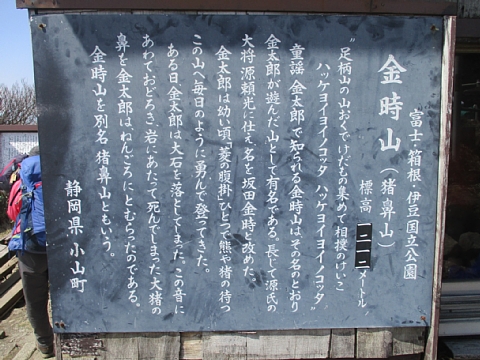 富士・箱根・伊豆国立公園
金時山(猪鼻山)
標高 一二一二メートル
"足柄山の山おくでけだもの集めて相撲のけいこ
ハッケヨイヨイノコッタ ハッケヨイヨイノコッタ"
童謡 金太郎で知られる金時山は、その名のとおり
金太郎が遊んだ山として有名である。長して源氏の
大将 源頼光に仕え名を坂田金時と改めた。
金太郎は幼い頃「菱の腹掛」ひとつで熊や猪の待つ
この山へ毎日のように勇んで登ってきた。
ある日金太郎は大石を落としてしまった。この音に
あわておどろき岩にあたって死んでしまった大猪の
鼻を金太郎はねんごろにとむらったのである。
金時山を別名 猪鼻山ともいう。
静岡県 小山町